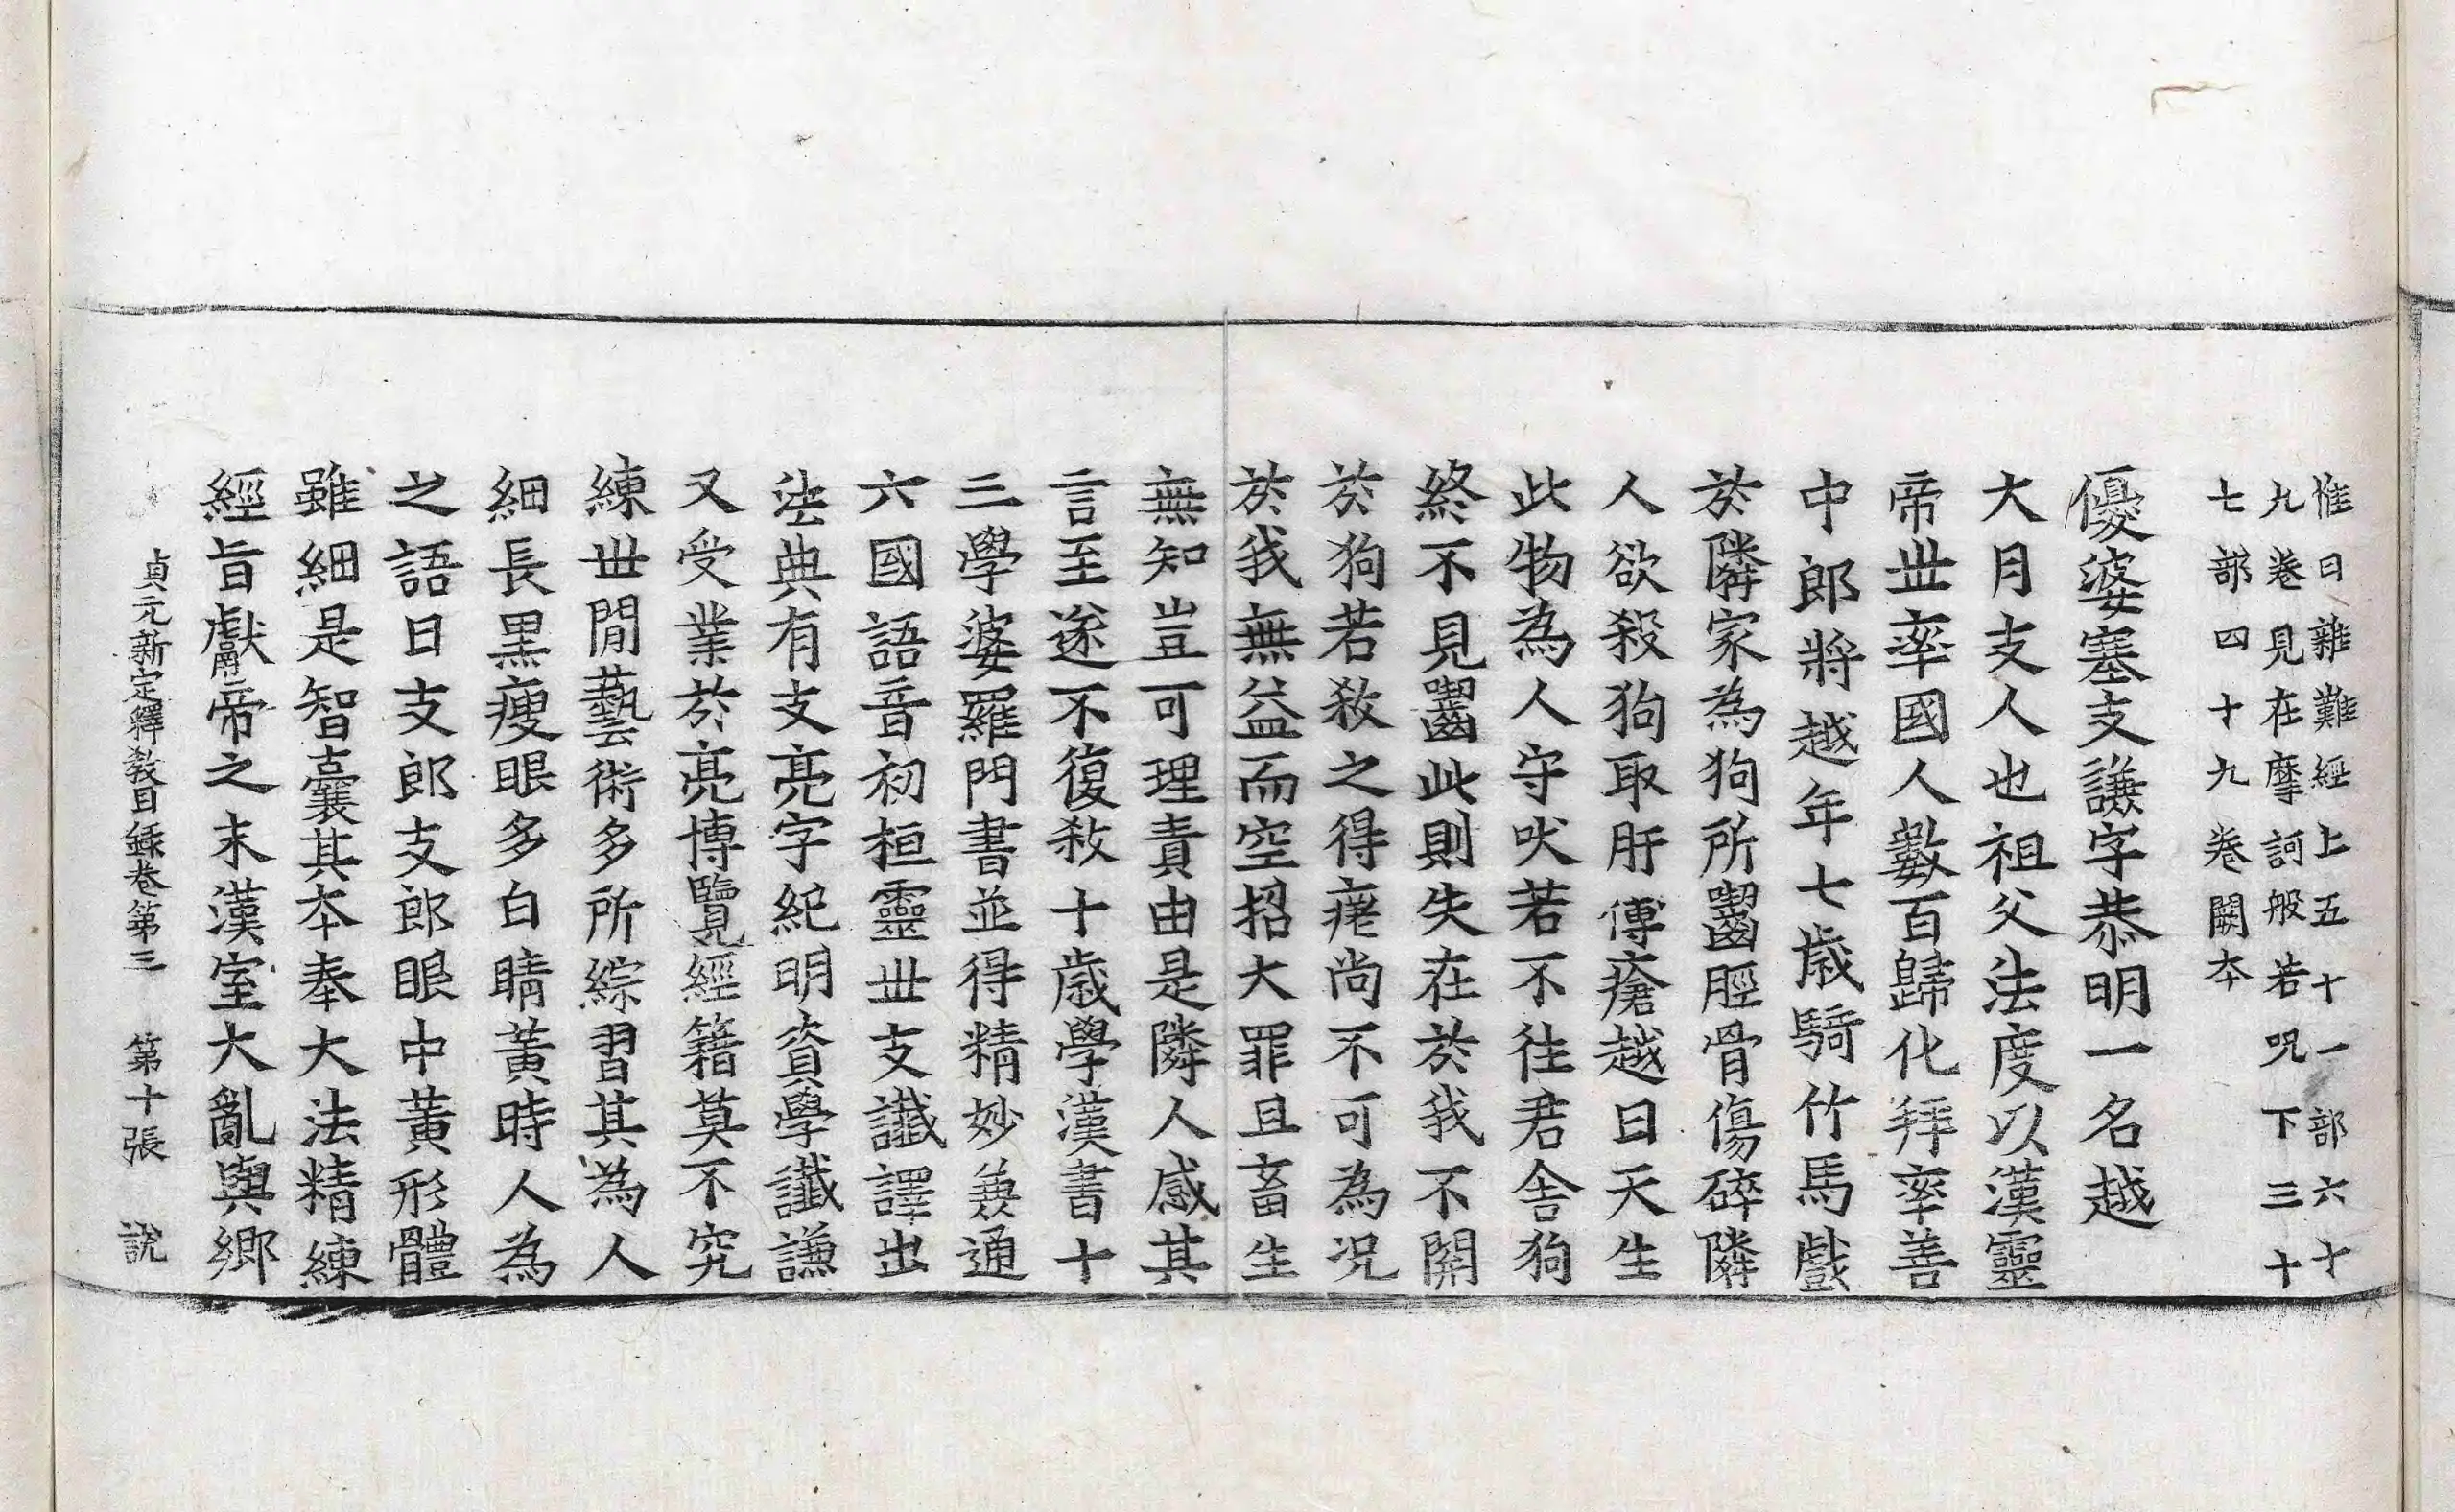 惟曰雜難經上五十一部六十
九卷見在摩訶般若呪下三十
七部四十九卷闕本
優婆塞支謙字恭明一名越
大月支人也祖父法度以漢靈
帝世率國人數百歸化拜率善
中郎將越年七歲騎竹馬戲
於隣家為狗所齧脛骨傷碎隣
人欲殺狗取肝傅瘡越曰天生
此物為人守吠若不往君舍狗
終不見齧此則失在於我不關
於狗若殺之得瘥尚不可為況
於我無益而空招大罪且畜生
無知豈可理責由是隣人感其
言至遂不復殺十歲學漢書十
三學婆羅門書並得精妙兼通
六國語音初桓靈世支讖譯出
法典有支亮字紀明資學讖謙
又受業於亮博覽經籍莫不究
練世間藝術多所綜習其為人
細長黑瘦眼多白睛黃時人為
之語曰支郎支郎眼中黃形體
雖細是智囊其本奉大法精練
經旨獻帝之末漢室大亂與鄉
貞元新定釋教目錄卷第三　第十張　說